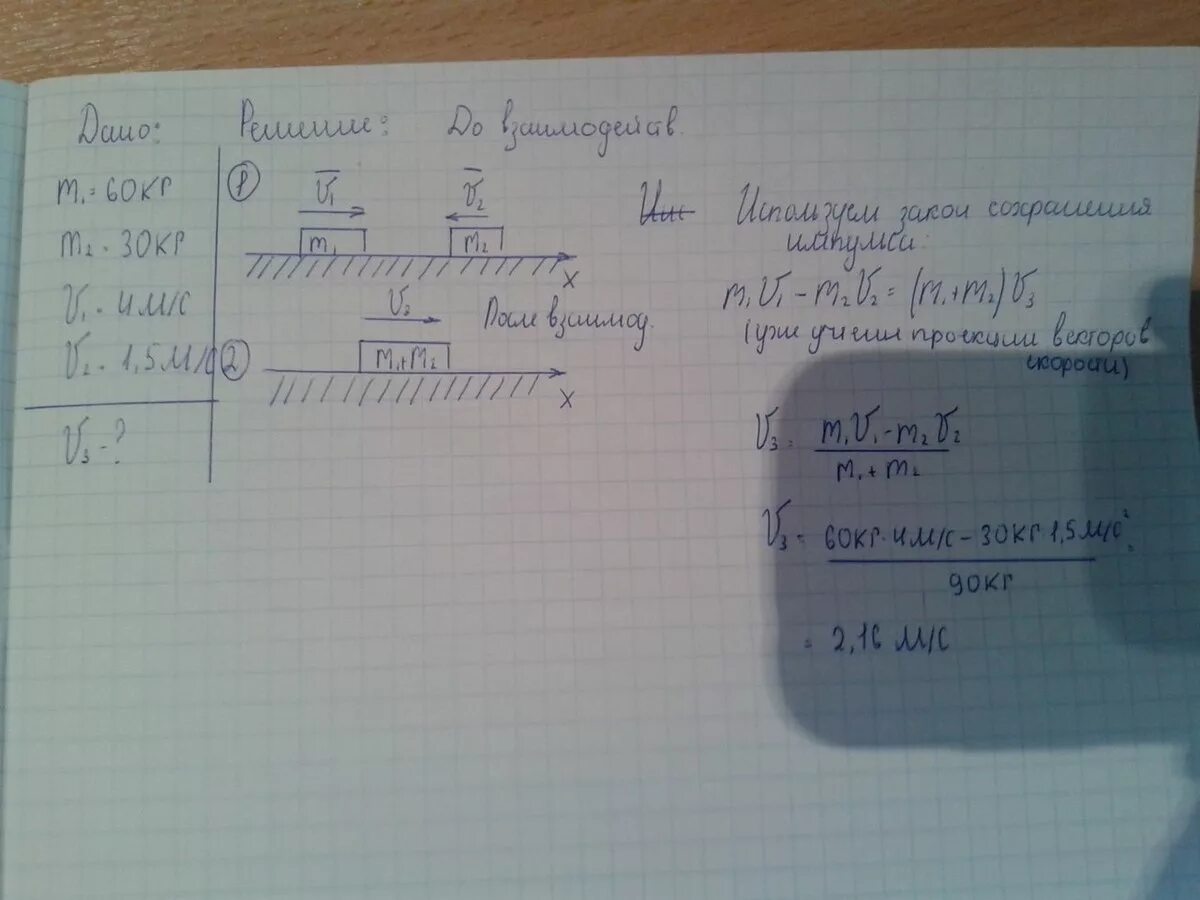 Дано:
m₁ = 60 кг
m₂ = 30 кг
V₁ = 4 м/с
V₂ = 1,5 м/с
V₃ - ?
Решение: До взаимодейств.
1
V̅₁ V̅₂
m₁ m₂
x
V₃ После взаимод.
2
m₁+m₂
x
Используем закон сохранения
импульса:
m₁V₁ - m₂V₂ = (m₁+m₂)V₃
(уже учтены проекции векторов
скорости)
V₃ = m₁V₁ - m₂V₂
m₁ + m₂
V₃ = 60кг·4м/с - 30кг·1,5м/с² =
90кг
= 2,16 м/с